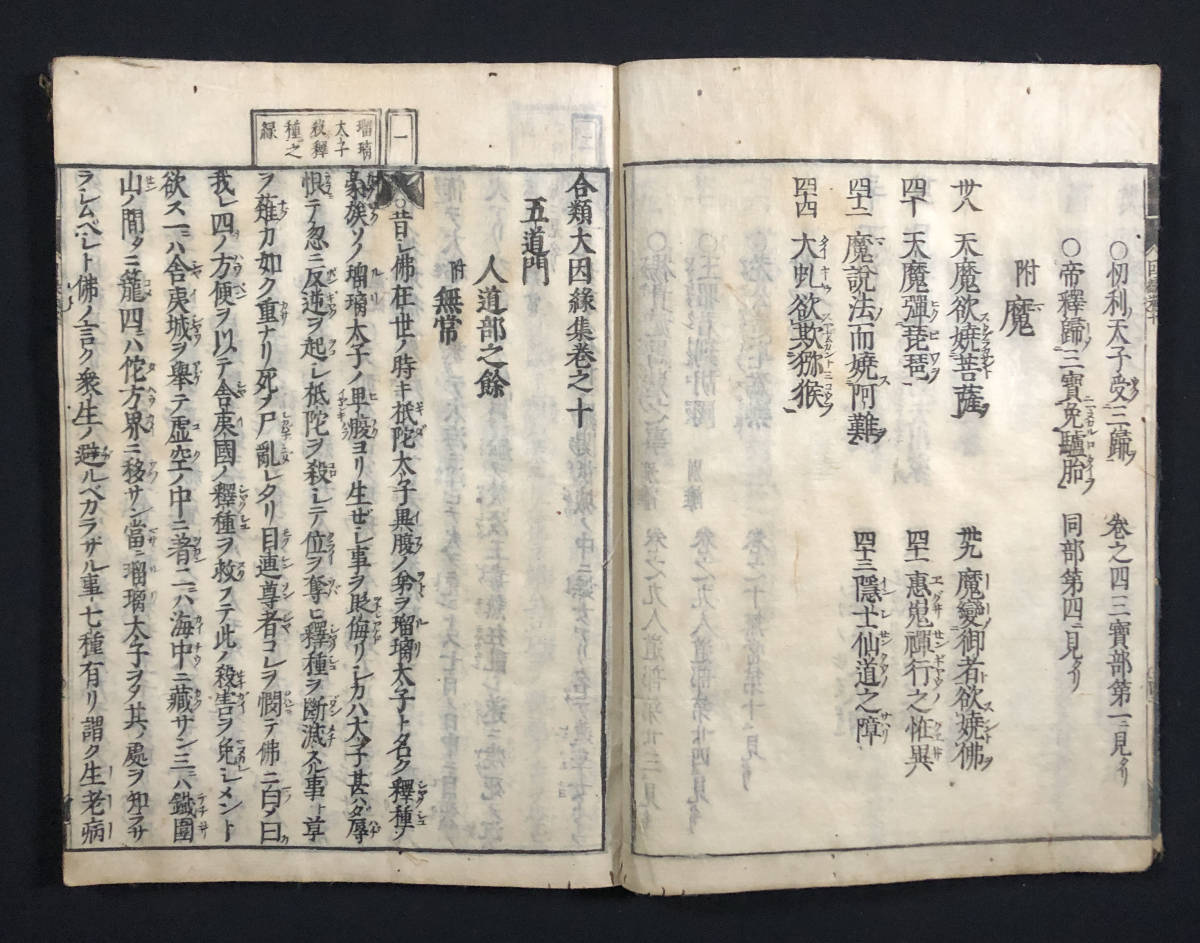 ○忉利天子受三歸ヲ 卷之四三寶部第一ニ見タリ
○帝釋歸三寶免驢胎 同部第四ニ見タリ
附魔
卅八 天魔欲嬈菩薩 卅九 魔變御者欲嬈佛
四十 天魔彈琵琶 四十一 惠嵬禪行之怪異
四十二 魔説法而嬈阿難 四十三 隱士仙道之障
四十四 大虬欲欺猕猴
合類大因縁集卷之十
五道門
人道部之餘
附無常
一
瑠璃
太子
殺釋
種之
縁
○昔シ佛在世ノ時キ祇陀太子異腹ノ弟ヲ瑠璃太子ト名ク釋種ノ
豪族ソノ瑠璃太子ノ卑腹ヨリ生ゼシ事ヲ欺侮リシカハ太子甚ハタ辱
恨テ忽ニ反逆ヲ起シ祇陀ヲ殺シテ位ヲ奪ヒ釋種ヲ斷滅スル事ト草
ヲ薙カ如ク重ナリ死ナ尸亂レタリ目連尊者コレヲ憫テ佛ニ白ク曰
我レ四ノ方便ヲ以テ舎夷國ノ釋種ヲ救フテ此ノ殺害ヲ免シメント
欲ス一ニハ舎夷城ヲ舉テ虚空ノ中ニ著二ハ海中ニ藏サン三ハ鐵圍
山ノ間タニ籠四ハ佗方界ニ移サン當ニ瑠璃太子ヲタ其ノ處ヲ知ラサ
ラシムベシト佛ノ言ク衆生ノ避ルベカラザル事七種有リ謂ク生老病